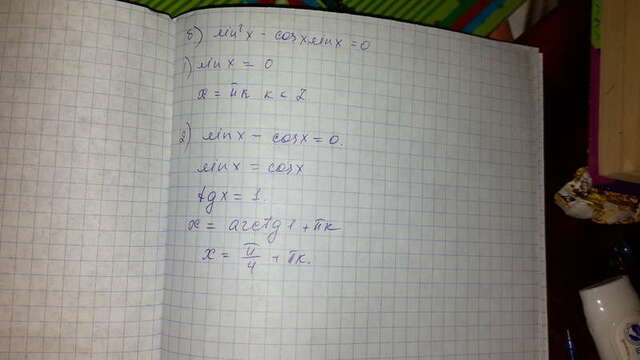 б) sin²x - cosx sinx = 0
1) sin x = 0
x = πk k ∈ Z
2) sinx - cosx = 0.
sinx = cosx
tgx = 1.
x = arctg 1 + πk
x = π/4 + πk.